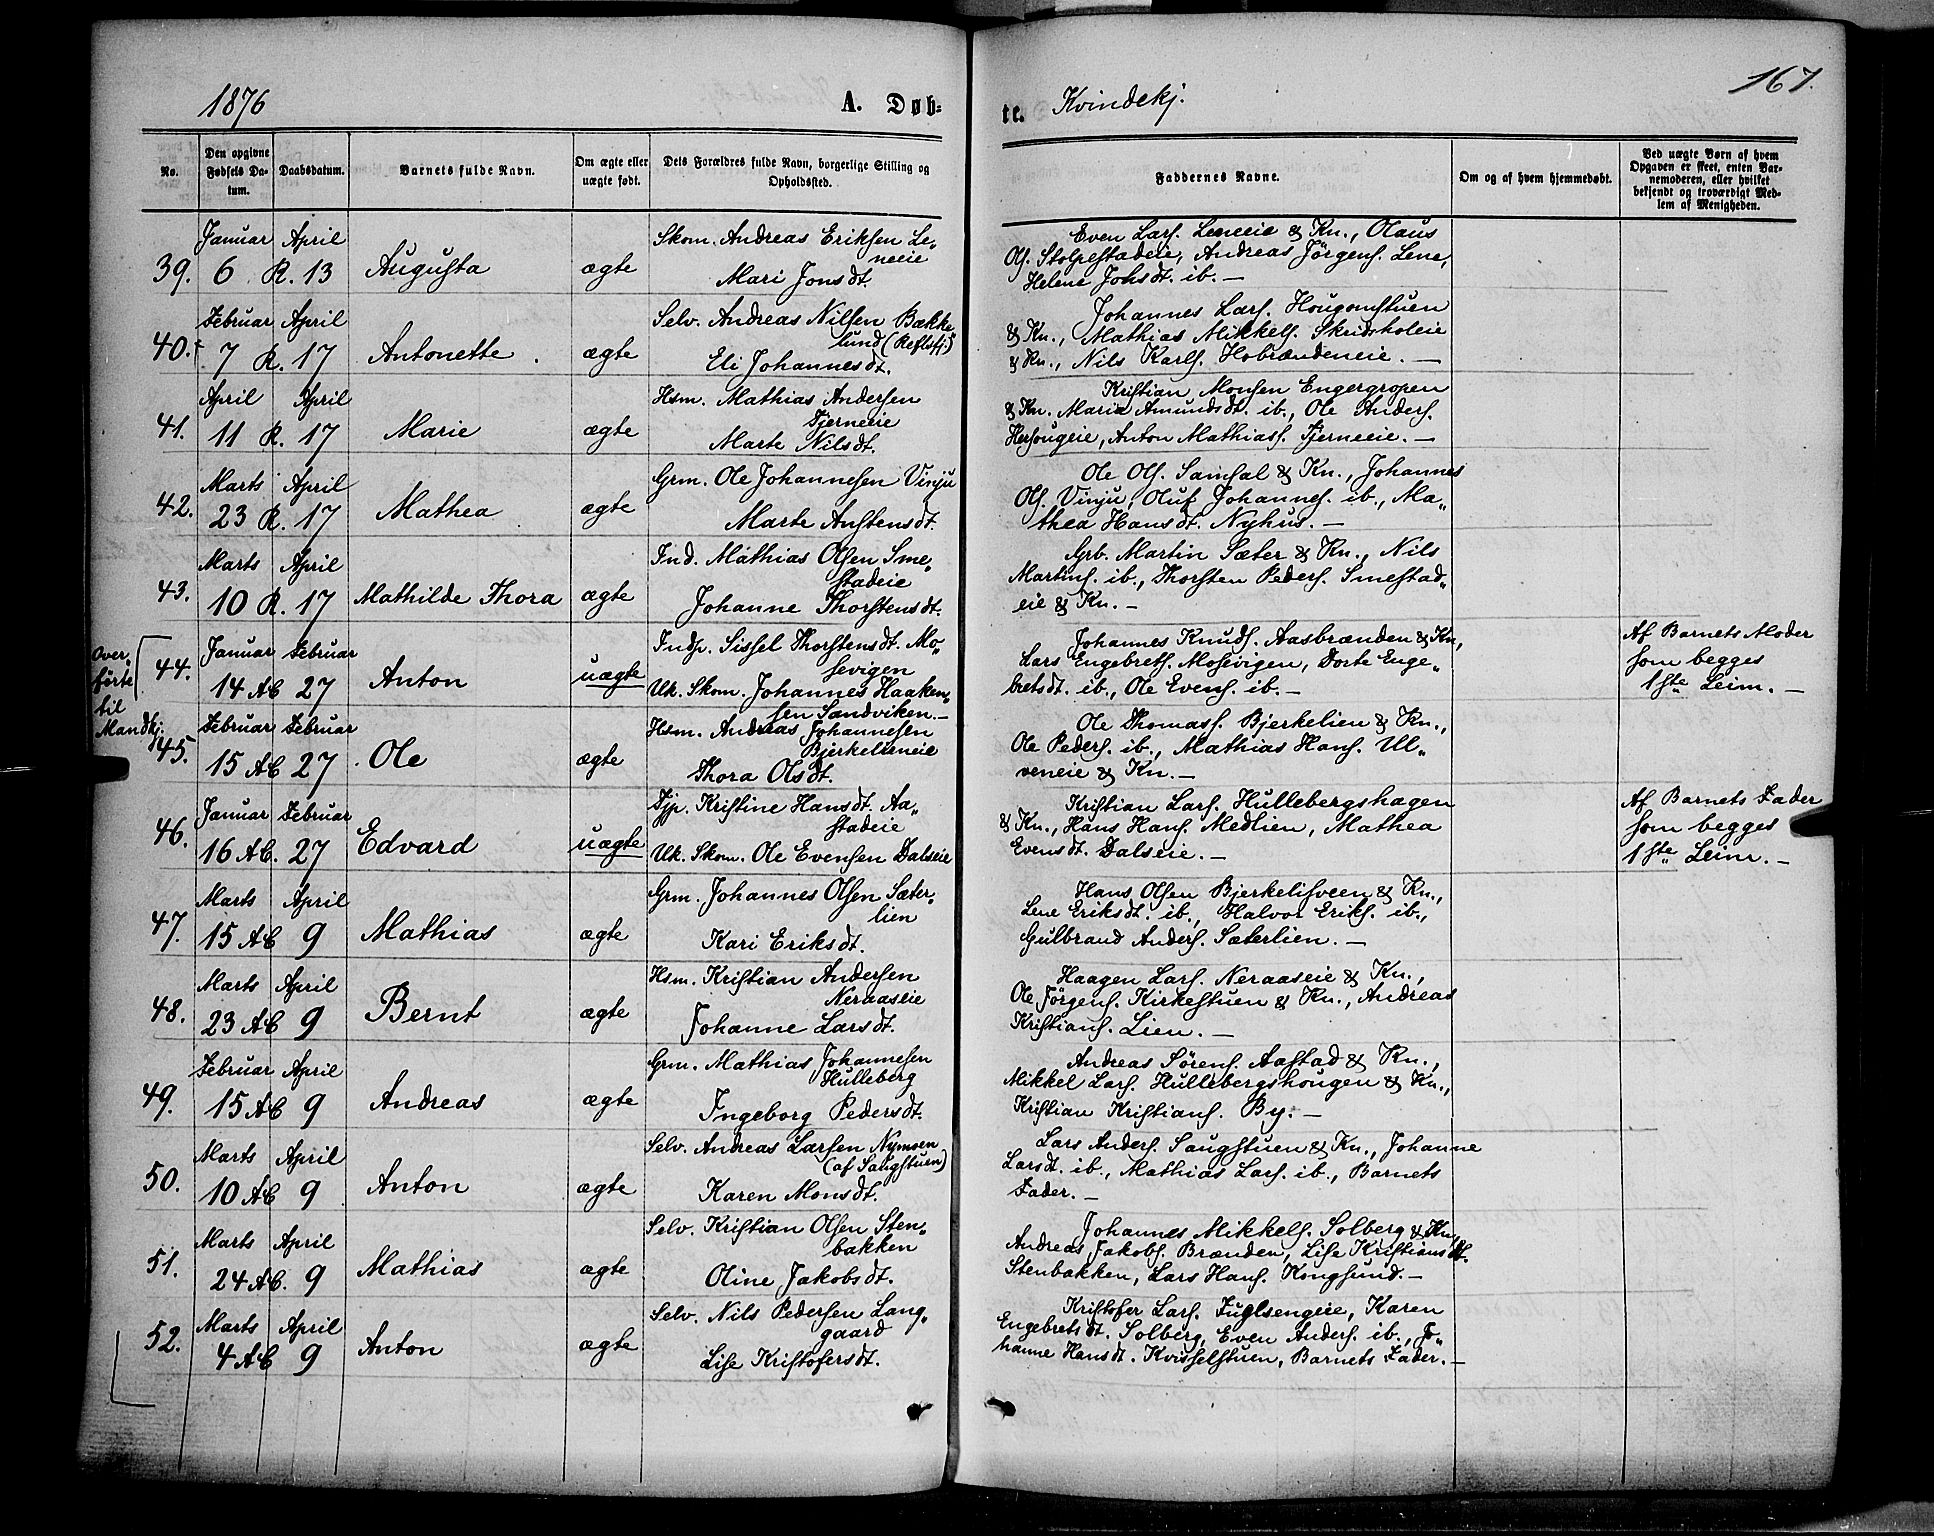 1876
A. Døb-
te. Kvindekj.
167.
No.
Den opgivne Fødsels Da-
tum.
Daabsdatum.
Barnets fulde Navn.
Om ægte eller
uægte født.
Dets Forældres fulde Navn, borgerlige Stilling og
Opholdssted.
Faddernes Navne.
Om og af hvem hjemmedøbt.
Ved uægte Børn af hvem
Opgaven er skeet, enten Bar-
nemoderen, eller hvilket
bekjendt og troværdigt Med-
lem af Menigheden.
39. Januar 6 R. April 13 Augusta ægte
Skom. Andreas Eriksen Le-
neeie
Mari Jonsdt.
Even Lars. Leneeie & Kn., Olaus
Ols. Stolpestadeie, Andreas Jörgens. Lene,
Helene Johsdt. ib. —
40. Februar 7 R. April 17 Antonette ægte
Selv. Andreas Nilsen Bække
lund
Eli Johannesdt.
Johannes Lars. Hougomstuen
& Kn., Mathias Mikkels. Skridsholeie
& Kn., Nils Karls. Hobrændeneie. —
41. April 11 R. April 17 Marie ægte
Hsm. Mathias Andersen
Tjerneeie
Marte Nilsdt.
Kristian Monsen Engergropen
& Kn. Marie Amundsdt. ib., Ole Anders.
Hersougeie, Anton Mathiass. Tjerneeie. —
42. Marts 23 R. April 17 Mathea ægte
Grm. Ole Johannesen Vinju
Marte Anstensdt.
Ole Ols. Samsal & Kn., Johannes
Ols. Vinju, Oluf Johannes. ib., Ma-
thea Hansdt. Nyhus. —
43. Marts 10 R. April 17 Mathilde Thora ægte
Ind. Mathias Olsen Sme-
stadeie
Johanne Thorstensdt.
Grb. Martin Sæter & Kn., Nils
Martins. ib., Thorsten Peders. Smestad-
eie & Kn. —
Over-
förte
til
Mandkj:
44. Januar 14 AC Februar 27 Anton uægte
Indp. Sissel Thorstensdt. Mo-
sevigen
Uk. Skom. Johannes Haaken-
sen Sandviken. —
Johannes Knuds. Aasbrænden & Kn,
Lars Engebrets. Mosevigen, Dorte Enge-
bretsdt. ib., Ole Evens. ib. —
Af Barnets Moder
som begges
1ste Leim. —
45. Februar 15 AC Februar 27 Ole ægte
Hsm. Andreas Johannesen
Bjerkelieneie
Thora Olsdt.
Ole Thomass. Bjerkelien & Kn.,
Ole Peders. ib., Mathias Hans. Ul-
veneie & Kn. —
46. Januar 16 AC. Februar 27 Edvard uægte
Tjp. Kristine Hansdt. Aa-
stadeie
Uk. Skom. Ole Evensen Dalseie
Kristian Lars. Hullebergshagen
& Kn., Hans Hans. Medlien, Mathea
Evensdt. Dalseie. —
Af Barnets Fader
som begges
1ste Leim. —
47. Marts 15 AC April 9 Mathias ægte
Grm. Johannes Olsen Sæter-
lien
Kari Eriksdt.
Hans Olsen Bjerkelisveen & Kn.,
Lene Eriksdt. ib., Halvor Eriks. ib.,
Gulbrand Anders. Sæterlien. —
48. Marts 23 AC April 9 Bernt ægte
Hsm. Kristian Andersen
Neraaseie
Johanne Larsdt.
Haagen Lars. Neraaseie & Kn.,
Ole Jörgens. Kirkestuen & Kn., Andreas
Kristians. Lien. —
49. Februar 15 AC April 9 Andreas ægte
Grm. Mathias Johannesen
Hulleberg
Ingeborg Pedersdt.
Andreas Sörens. Aastad & Kn.,
Mikkel Lars. Hullebergshougen & Kn.,
Kristian Kristians. By. —
50. Marts 10 AC April 9 Anton ægte
Selv. Andreas Larsen Nymoen
(af Saugstuen)
Karen Monsdt.
Lars Anders. Saugstuen & Kn., Johanne
Larsdt. ib., Mathias Lars. ib., Barnets
Fader. —
51. Marts 24 AC. April 9 Mathias ægte
Selv. Kristian Olsen Sten-
bakken
Oline Jakobsdt.
Johannes Mikkels. Solberg & Kn,
Andreas Jakobs. Brænden, Lise Kristiansdt.
Stenbakken, Lars Hans. Kongsund. —
52. Marts 4 AC April 9 Anton ægte
Selv. Nils Pedersen Lang-
gaard
Lise Kristofersdt.
Kristofer Lars. Fuglsengeie, Karen
Engebretsdt. Solberg, Even Anders. ib., Jo-
hanne Hansdt. Kvisselstuen, Barnets Fader. —